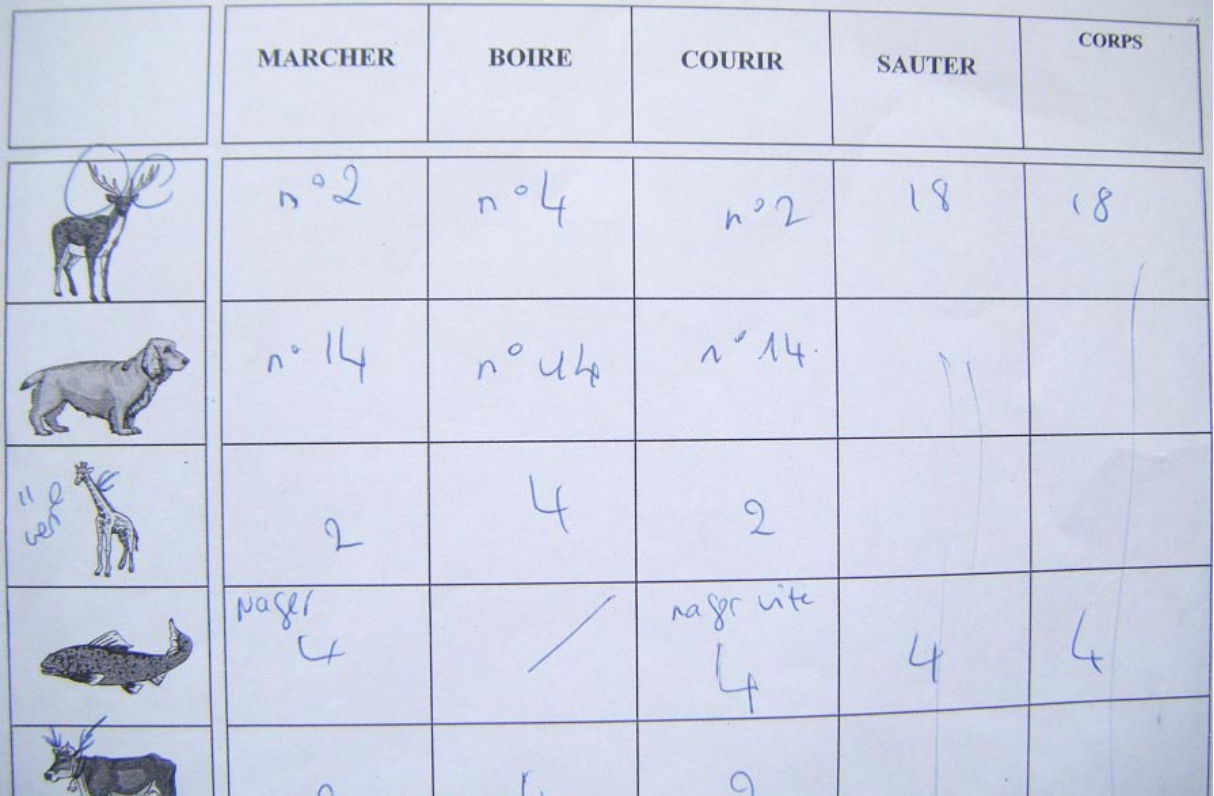 MARCHER BOIRE COURIR SAUTER CORPS
n°2 n°4 n°2 18 18
n°14 n°14 n°14.
2 4 2
nager nager vite
4 / 4 4 4